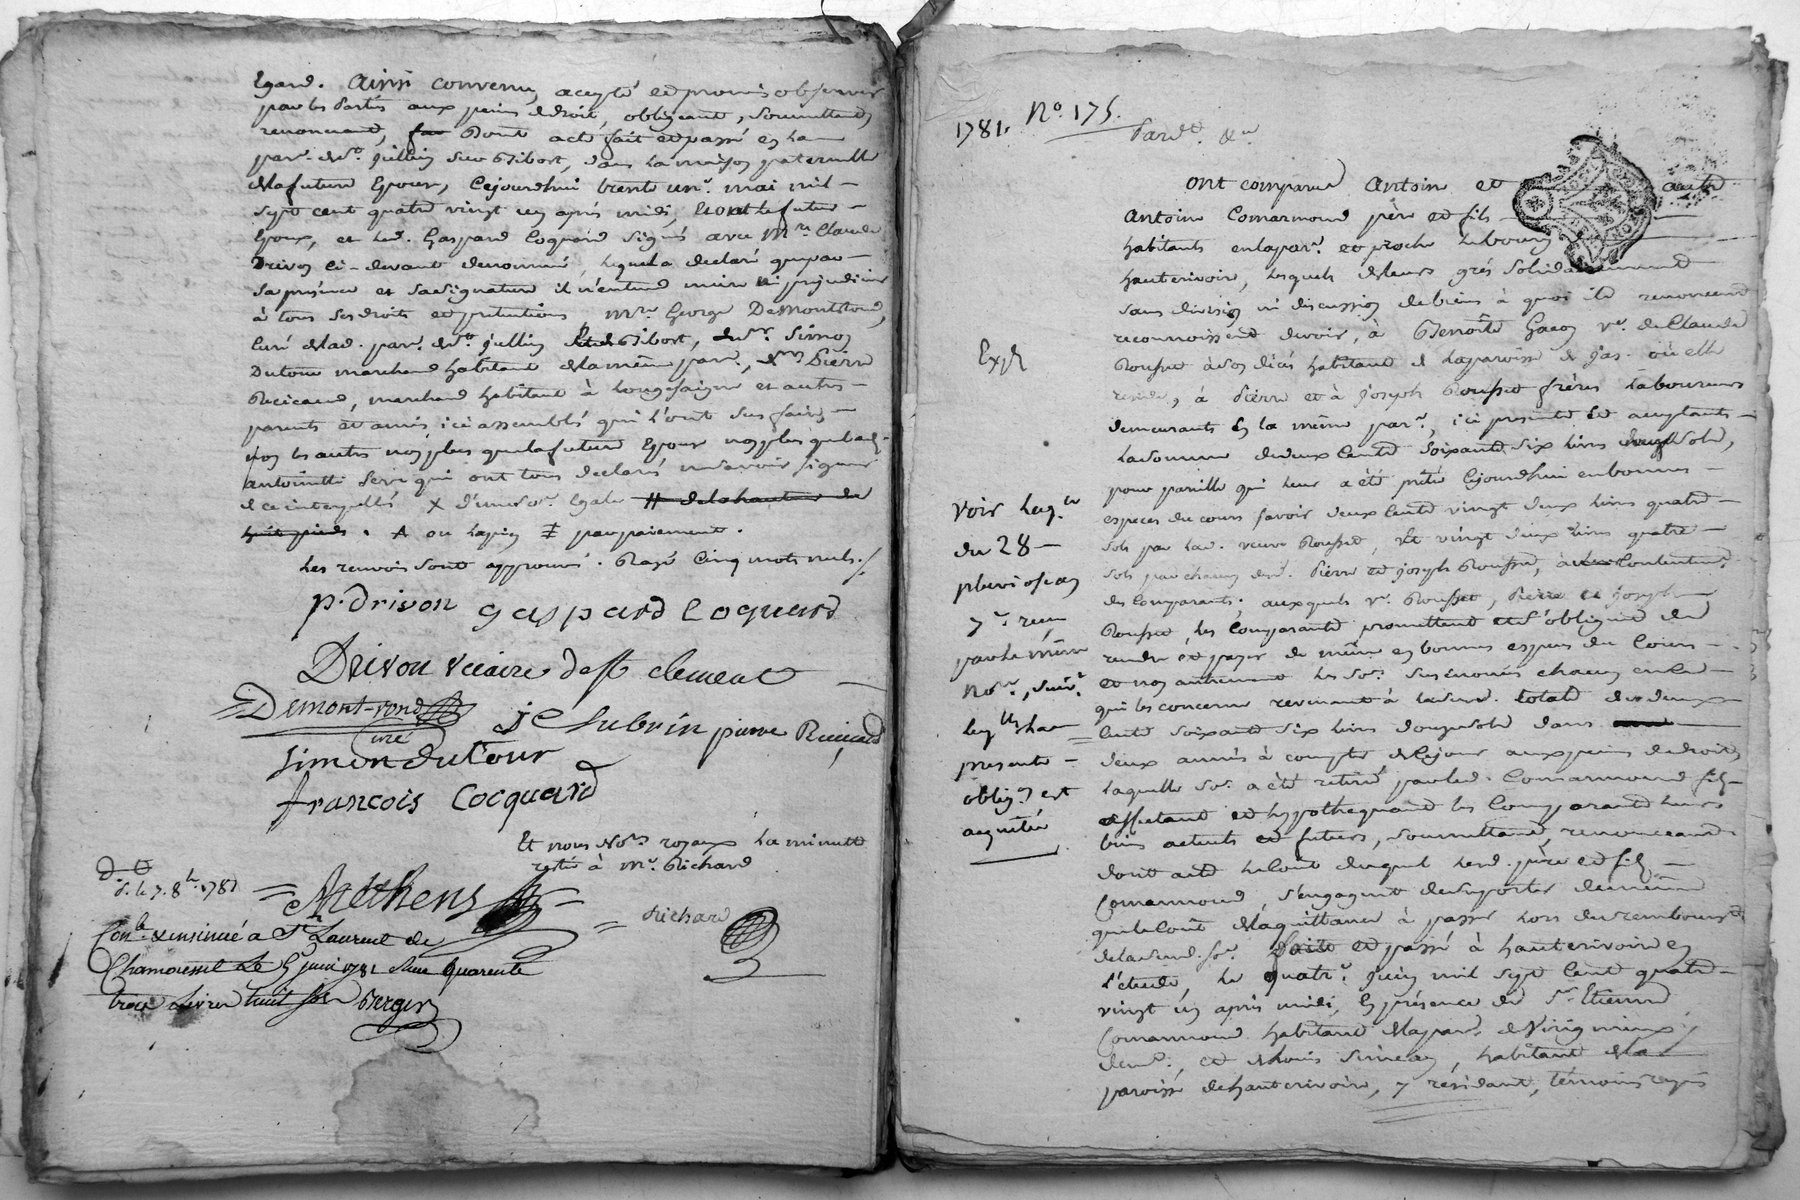 Egard. Ainsi convenu, accepté et promis observer
par les parties aux peines de droit, obligeant, soumettant,
renoncant, dont acte fait et passé en la
par. de St. jullien sur Bibost, dans la maison paternelle
de la future Epouse, cejourdhui trente un. mai mil
sept cent quatre vingt un après midi, Et ont le futur
Epoux, et led. Gaspard Coquard signé avec Mre Claude
Drivon ci-devant denommé, lequel a declaré que par
sa présence et sa signature il n'entend nuire ni prejudicier
à tous ses droits et pretentions Mre George DeMontrond,
Curé de lad. par. de St. jullien sur Bibost, de Sr. Simon
Dutour marchand habitant de la même par., de Pierre
marchand habitant à Longessaigne et autres
parents et amis ici assemblés qui l'ont
non les autres non plus que la future Epouse non plus que lad.
antoinette qui ont tous declaré ne savoir signer
de ce interpellés X d'une so. Egale # de la hauteur de
huit pieds. A ou lapin par payement.
Les renvois sont approuvés. Rayé Cinq mots nuls./.
p. drivon gaspard Coquard
Drivon vicaire de st clement
Demont-rond curé
pierre
Simon dutour
francois Cocquard
Et nous No.res royaux la minutte
restée à Me. Richard
S. le 7. 8b. 1781
Richard
Con.lé & insinué a St Laurent de
Chamousset Le 5 juin 1781 Reçu quarente
trois Livres huit sols Berger
1781. No. 175.
Pardt. &a
ont comparu Antoine et autre
Antoine Comarmond père et fils
habitants en la par. et proche le bourg
hauterivoire, lesquels de leurs grés solidairement
sans division ni discussion de biens à quoi ils renoncent
reconnoissent devoir, à Benoîte Gacon ve. de Claude
Rousset habitante de la paroisse de jas. où elle
reside, à Pierre et à joseph Rousset frères laboureurs
demeurants En la même par., ici présents et acceptants
la somme de deux Cents soixante six livres douze sols,
pour pareille qui leur a été prêtée cejourdhui en bonnes
especes du cours savoir deux cents vingt deux livres quatre
sols par lad. veuve Rousset, et vingt deux livres quatre
sols par chacun desd. Pierre et joseph Rousset, à contentement
des Comparants; auxquels ve. Rousset, Pierre et joseph
Rousset, les Comparants promettent et s'obligent de
rendre et payer de même en bonnes especes du Cours
et non autrement les so. susenoncés chacun en ce
qui les concerne revenant à la susd. totale de deux
Cents soixante six livres douze sols dans
deux années à compter de cejour aux peines de droit,
laquelle so. a été retirée par led. Comarmond fils
affectant et hypothequant les Comparants leurs
biens actuels et futurs, soumettant, renonceant
dont acte le Coût duquel lesd. père et fils
Comarmond, s'engagent de suporter de même
que le Coût de la quittance à passer lors du rembours.t
de la susd. so. fait et passé à hauterivoire en
l'étude, le quatre juin mil sept Cent quatre
vingt un après midi, En présence de Sr. Etienne
Comarmond habitant de la par. de Virigneux,
et de Louis Siméan, habitant de la
paroisse de hauterivoire, y résidant, témoins requis
Exp.
Voir la q.ce
du 28
pluviose an
7e. recu
par le même
No.re, suiv.t
laq.lle la
presente
oblig.on est
acquittée